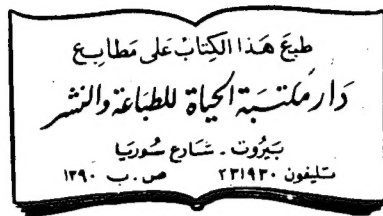 طبعَ هَذا الكِتابْ عَلى مَطابع
دَار مكتبَة الحيَاة للطبَاعَة والنشر
بَيرُوت - شارع سُوريَا
تليفون ٢٣١٩٣٠ ص.ب ١٣٩٠